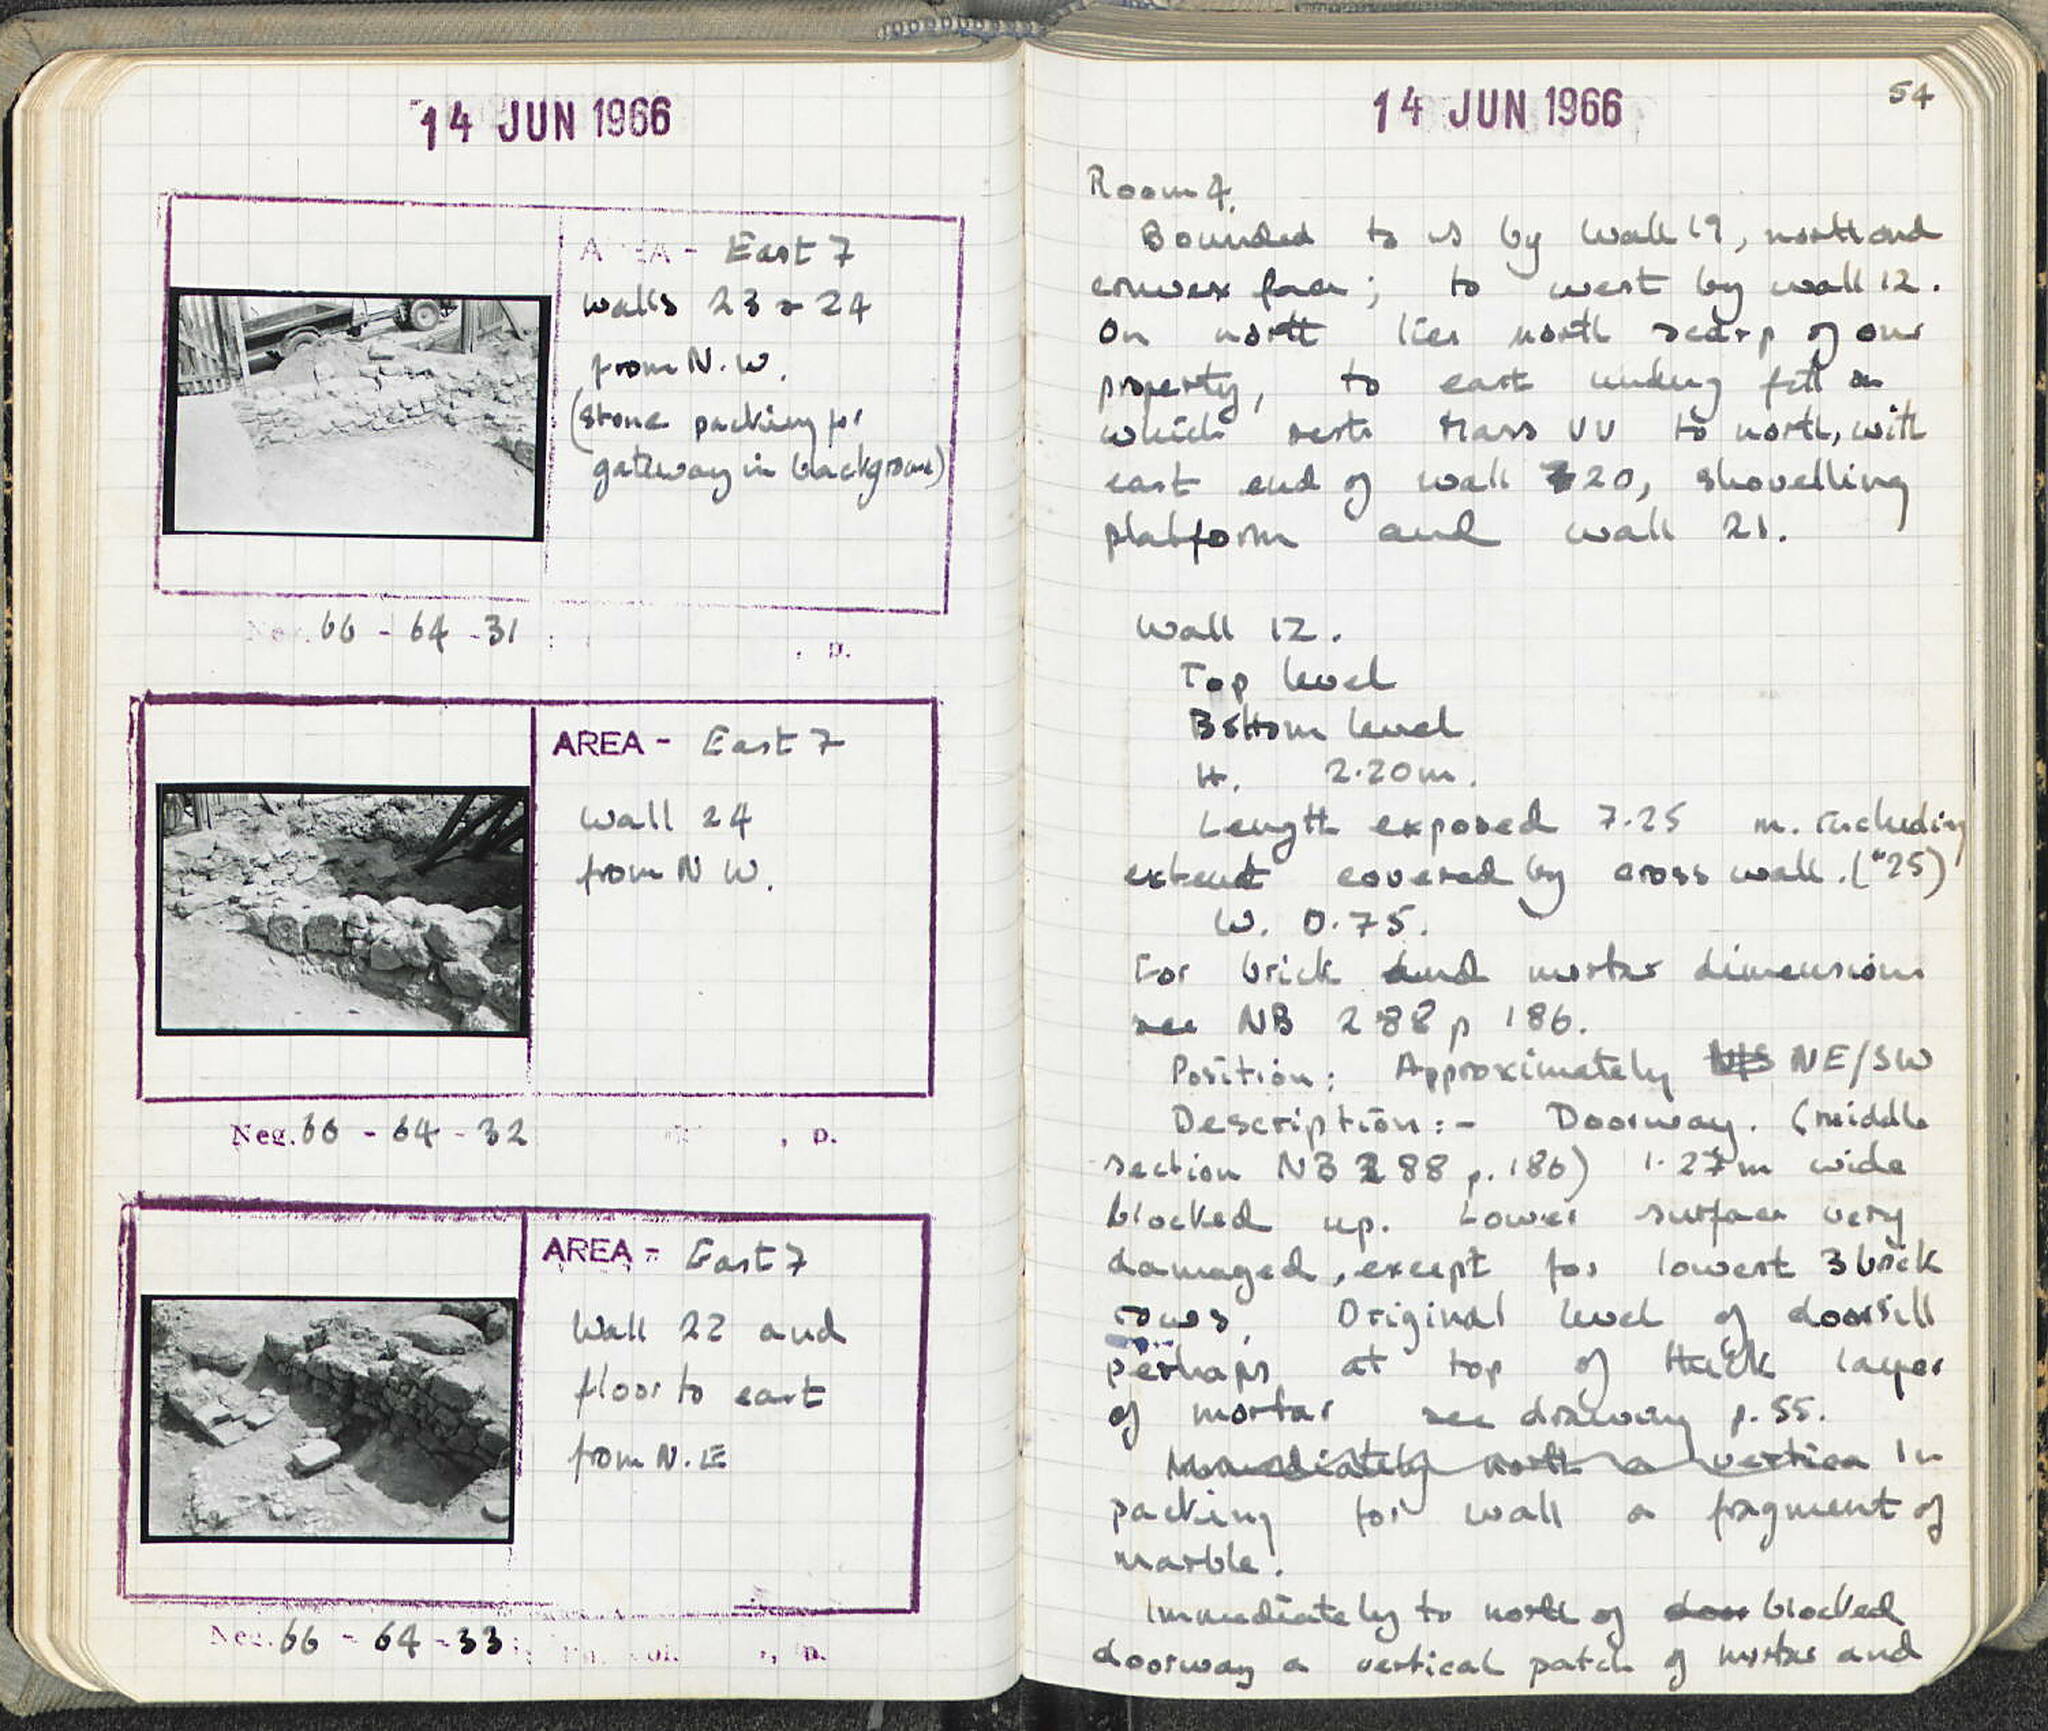 14 JUN 1966
AREA - East 7
Walls 23 & 24
from N.W.
(Stone packing for
gateway in background)
Neg. 66 - 64 - 31
, p.
AREA - East 7
Wall 24
from N W.
Neg. 66 - 64 - 32 , p.
AREA - East 7
Wall 22 and
floor to east
from N.E
Neg. 66 - 64 - 33 , p.
14 JUN 1966
54
Room 4.
Bounded to by Wall 19, north and
convex face; to west by wall 12.
On north lies north scarp of our
property, to east undug fill
which rests Mass VV to north, with
east end of wall 20, shovelling
platform and wall 21.
Wall 12.
Top level
Bottom level
H. 2.20m.
Length exposed 7.25 m. including
extent covered by cross wall. (*25)
W. 0.75.
For brick and mortar dimensions
see NB 288 p 186.
Position: Approximately N/S NE/SW
Description:- Doorway. (middle
section NB 288 p. 186) 1.27m wide
blocked up. Lower surface very
damaged, except for lowest 3 brick
rows. Original level of doorsill
perhaps at top of thick layer
of mortar see drawing p. 55.
Immediately north a vertica In
packing for wall a fragment of
marble.
Immediately to north of door blocked
doorway a vertical patch of mortar and